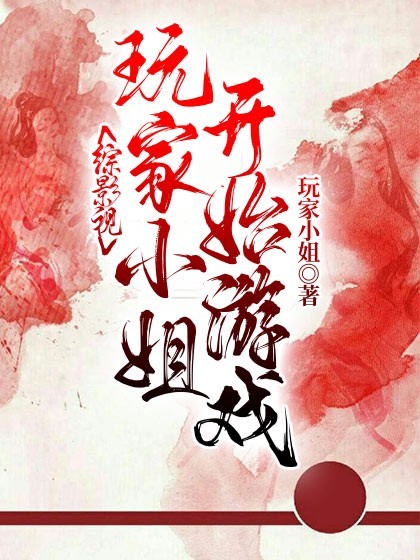 玩家小姐
开始游戏
<综影视>
玩家小姐◎著